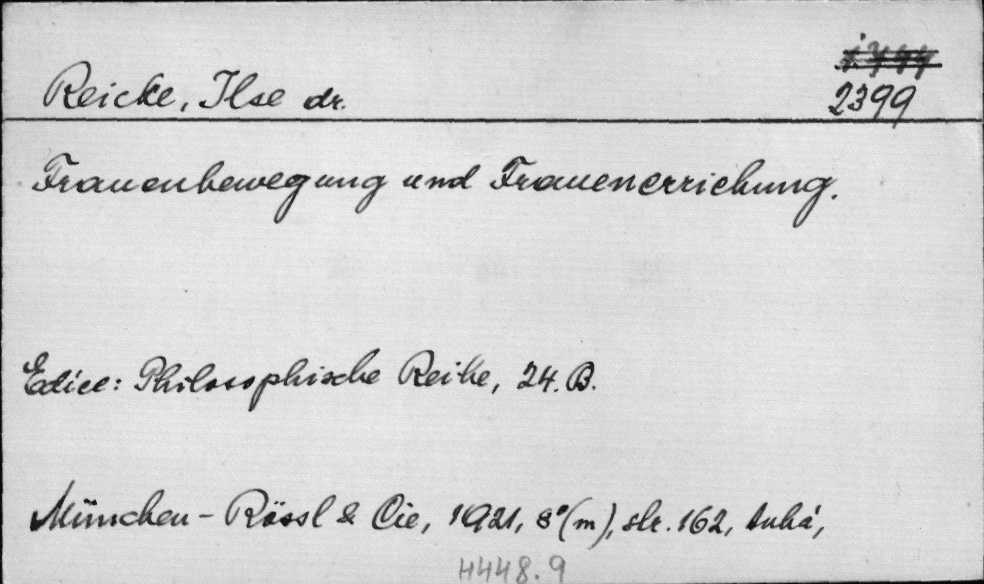 Reicke, Ilse dr.
2399
Frauenbewegung und Frauenerrichung.
Edice: Philosophische Reihe, 24. B.
München - Rössl & Cie, 1921, 8° (m), str. 162, tuhá,
4448.9